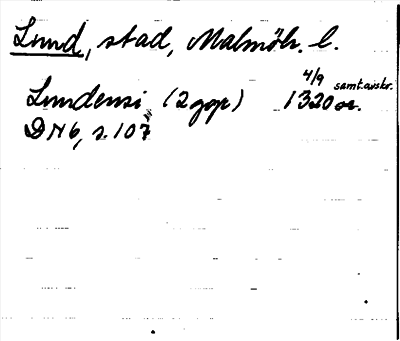 Lund, stad, Malmöh. l.
Lundensi (2 ggr) 4/9 1320 or. samt.avskr.
DN 6, s. 107